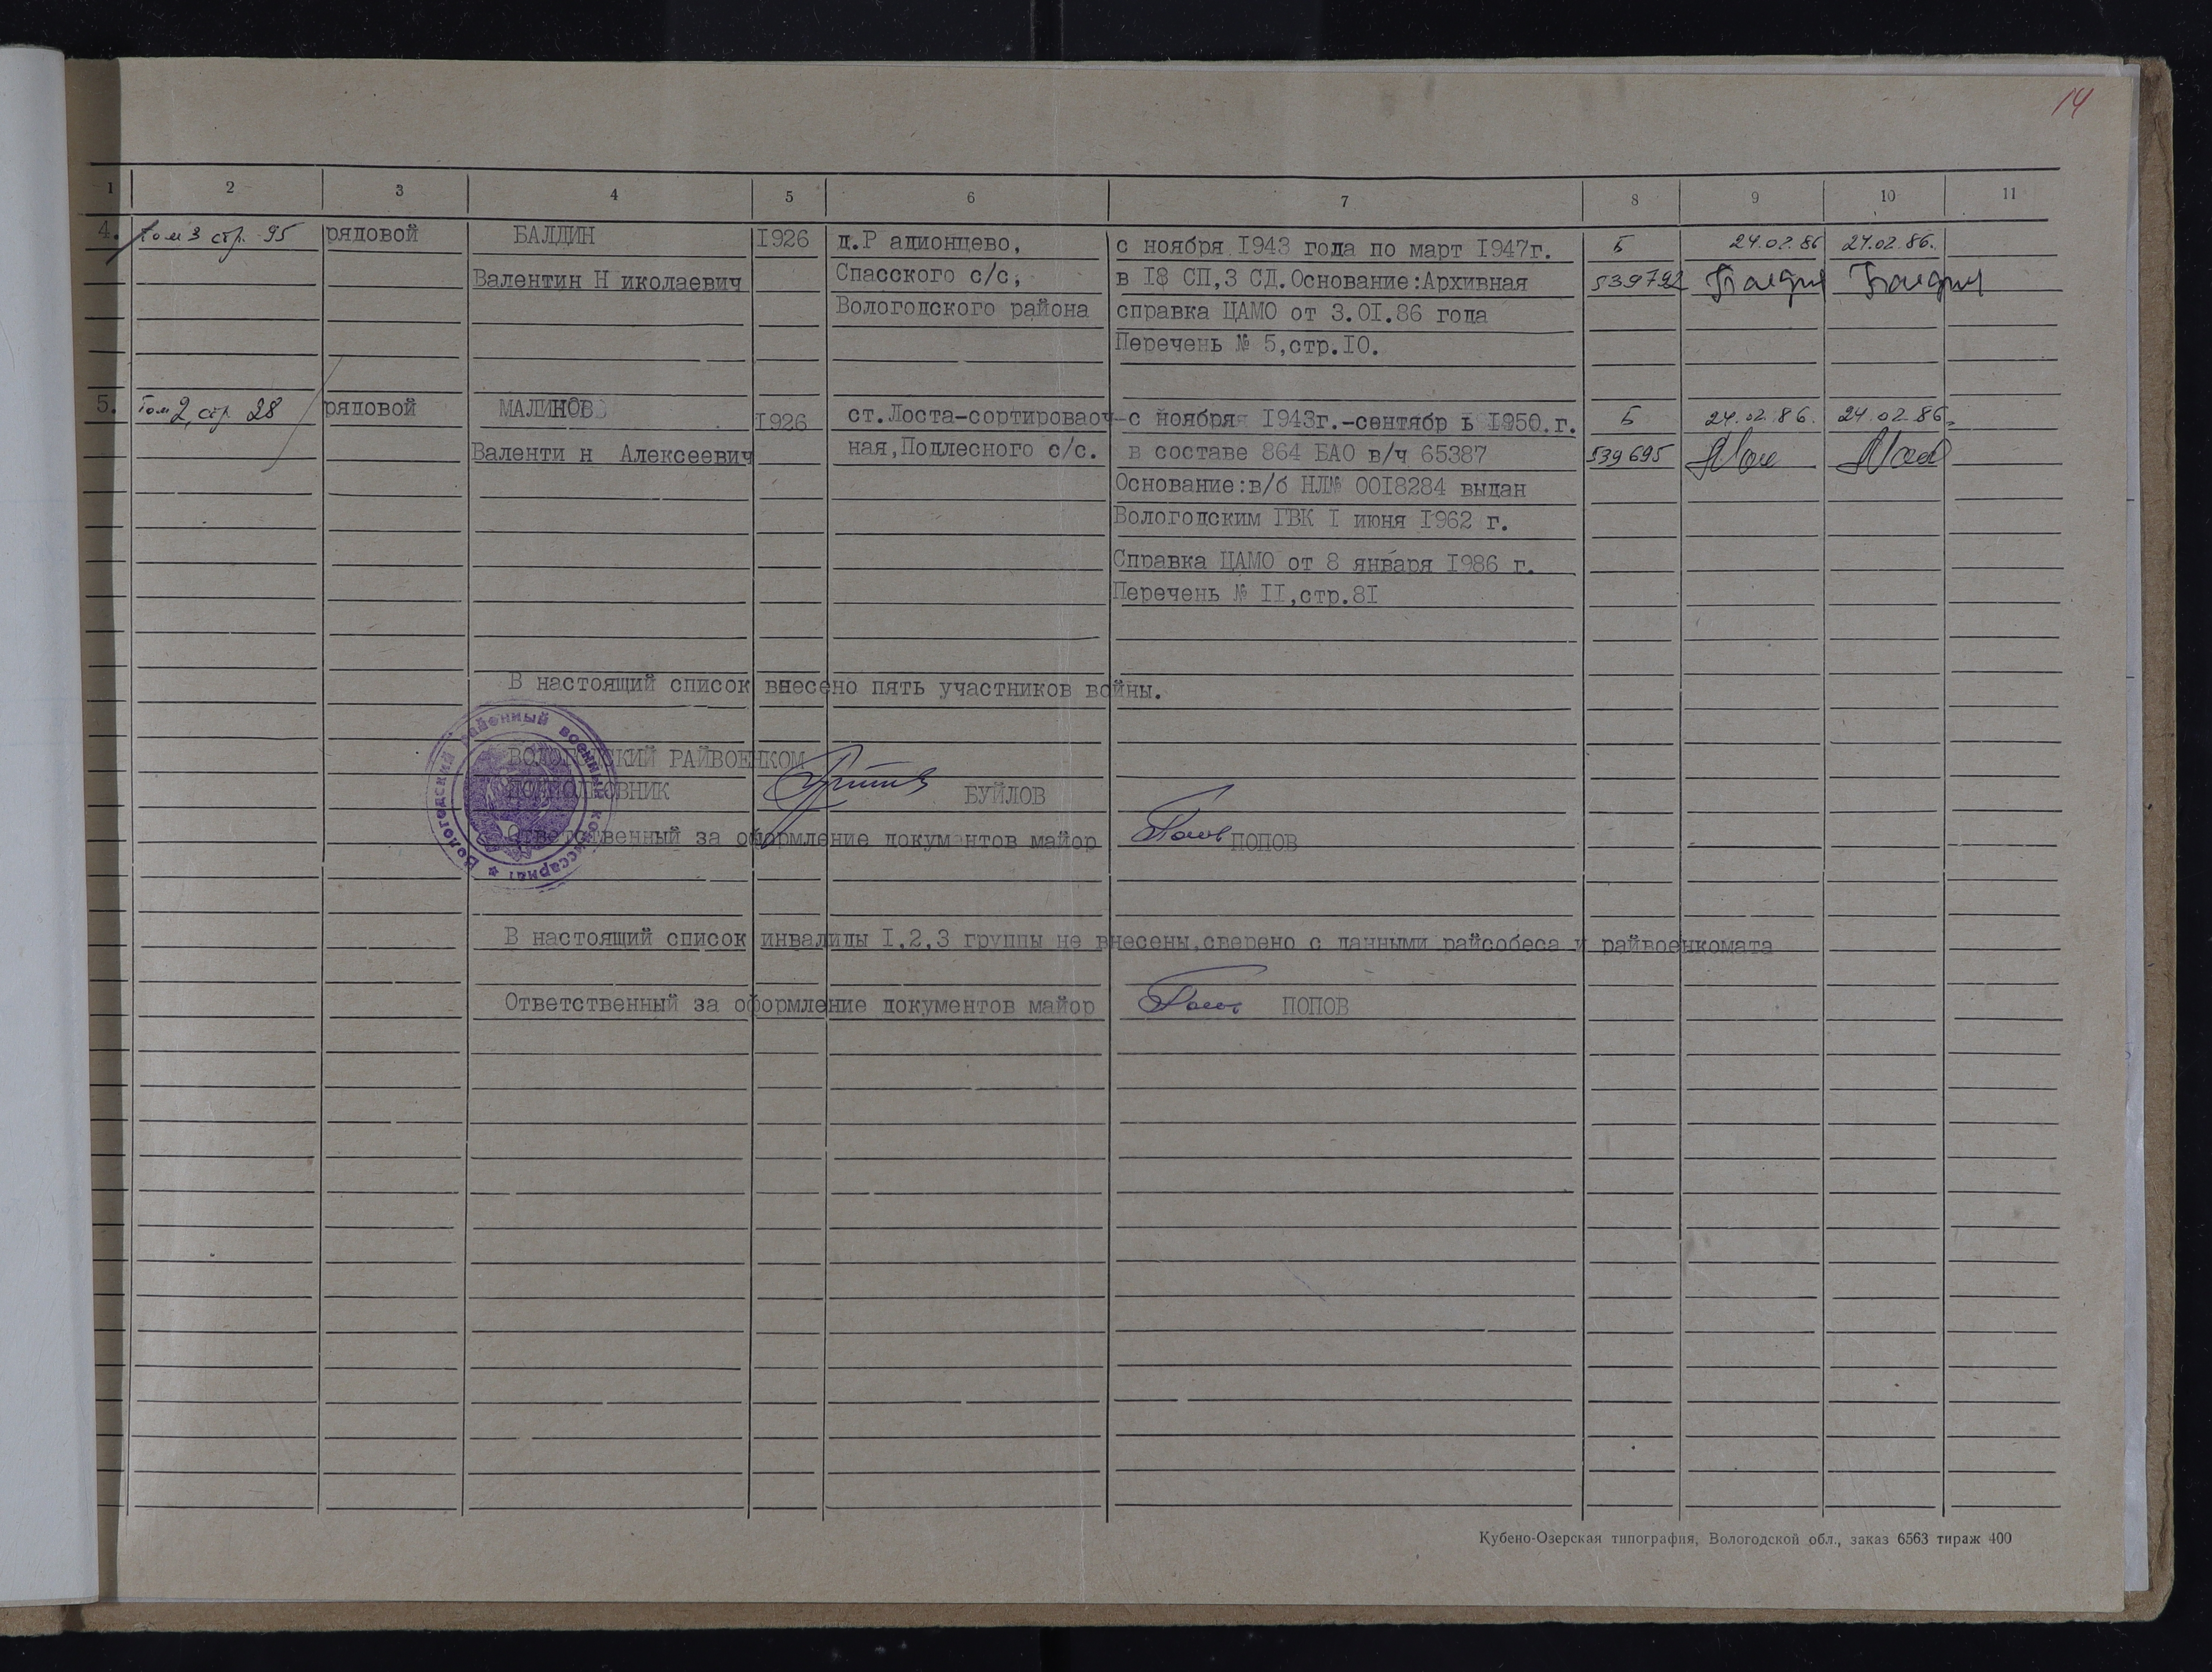 14
1 2 3 4 5 6 7 8 9 10 11
4. Том 3 стр. 95 рядовой БАЛДИН 1926 д.Р адионцево, с ноября 1943 года по март 1947г. Б 24.02.86 24.02.86.
Валентин Н иколаевич Спасского с/с, в 18 СП,3 СД.Основание:Архивная 539792 Балдин Балдин
Вологодского района справка ЦАМО от 3.01.86 года
Перечень № 5,стр.10.
5. Том 2, стр. 28 рядовой МАЛИНОВ 1926 ст.Лоста-сортировоч- с ноября 1943г.-сентябр ь 1950.г. Б 24.02.86. 24.02.86.
Валенти н Алексеевич ная,Подлесного с/с. в составе 864 БАО в/ч 65387 539695
Основание:в/б НЛ№ 0018284 выдан
Вологодским ГВК 1 июня 1962 г.
Справка ЦАМО от 8 января 1986 г.
Перечень № 11,стр.81
В настоящий список внесено пять участников войны.
ВОЛОГОДСКИЙ РАЙВОЕНКОМ
ПОДПОЛКОВНИК БУЙЛОВ
Ответственный за оформление документов майор ПОПОВ
Вологодский районный военный комиссариат
В настоящий список инвалиды 1,2,3 группы не внесены,сверено с данными райсобеса и райвоенкомата
Ответственный за оформление документов майор ПОПОВ
Кубено-Озерская типография, Вологодской обл., заказ 6563 тираж 400